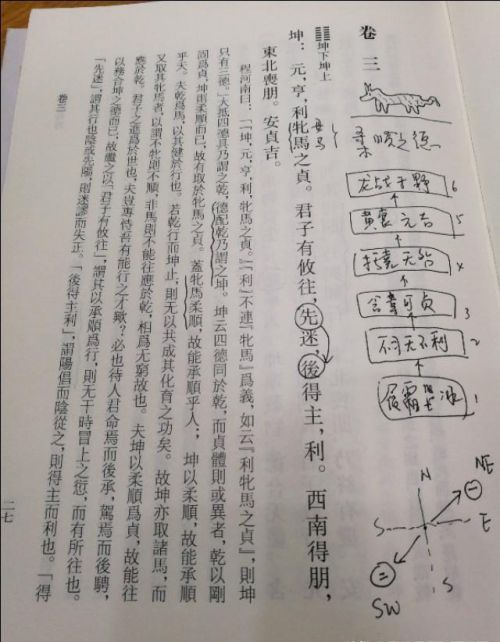 卷三
䷁坤下坤上
坤:元,亨,利牝馬之貞。君子有攸往,先迷,後得主,利。西南得朋,
東北喪朋。安貞吉。
程河南曰:「『坤,元,亨,利,牝馬之貞。』『利』不連『牝馬』爲義,如云『利牝馬之貞』,則坤
只有三德。」大抵四德具乃謂之乾,德配乾乃謂之坤。坤云四德同於乾,而貞體則或異者,乾以剛
固爲貞,坤柔順而已,故有取於牝馬之貞。蓋牝馬柔順,故能承順乎人;坤以柔順,故能承順
乎天。夫乾爲馬,以其健於行也。若乾行而坤止,則無以共成其化育之功矣。故坤亦取諸馬,而
又取其牝馬者,以謂不牝則不順,非馬則不能往應於乾,相爲无窮故也。夫坤以柔順爲貞,故能往
應於乾。君子之進爲於世也,夫豈專恃吾有能行之才歟?必也待人君命焉而後承,駕焉而後騁,
以務合坤之德而已。故繼之以「君子有攸往」,謂其以承順爲行,則无干時冒上之愆,而有所往也。
「先迷」,謂其行也陰或先陽,則迷謬而失正。「後得主利」,謂陽倡而陰從之,則得主而利也。「得
卷三
二七
母马
柔順之德
龙战于野 6
黄裳元吉 5
括囊无咎 4
含章可贞 3
不习无不利 2
履霜坚冰 1
N
NE
一
S
E
二
S
SW